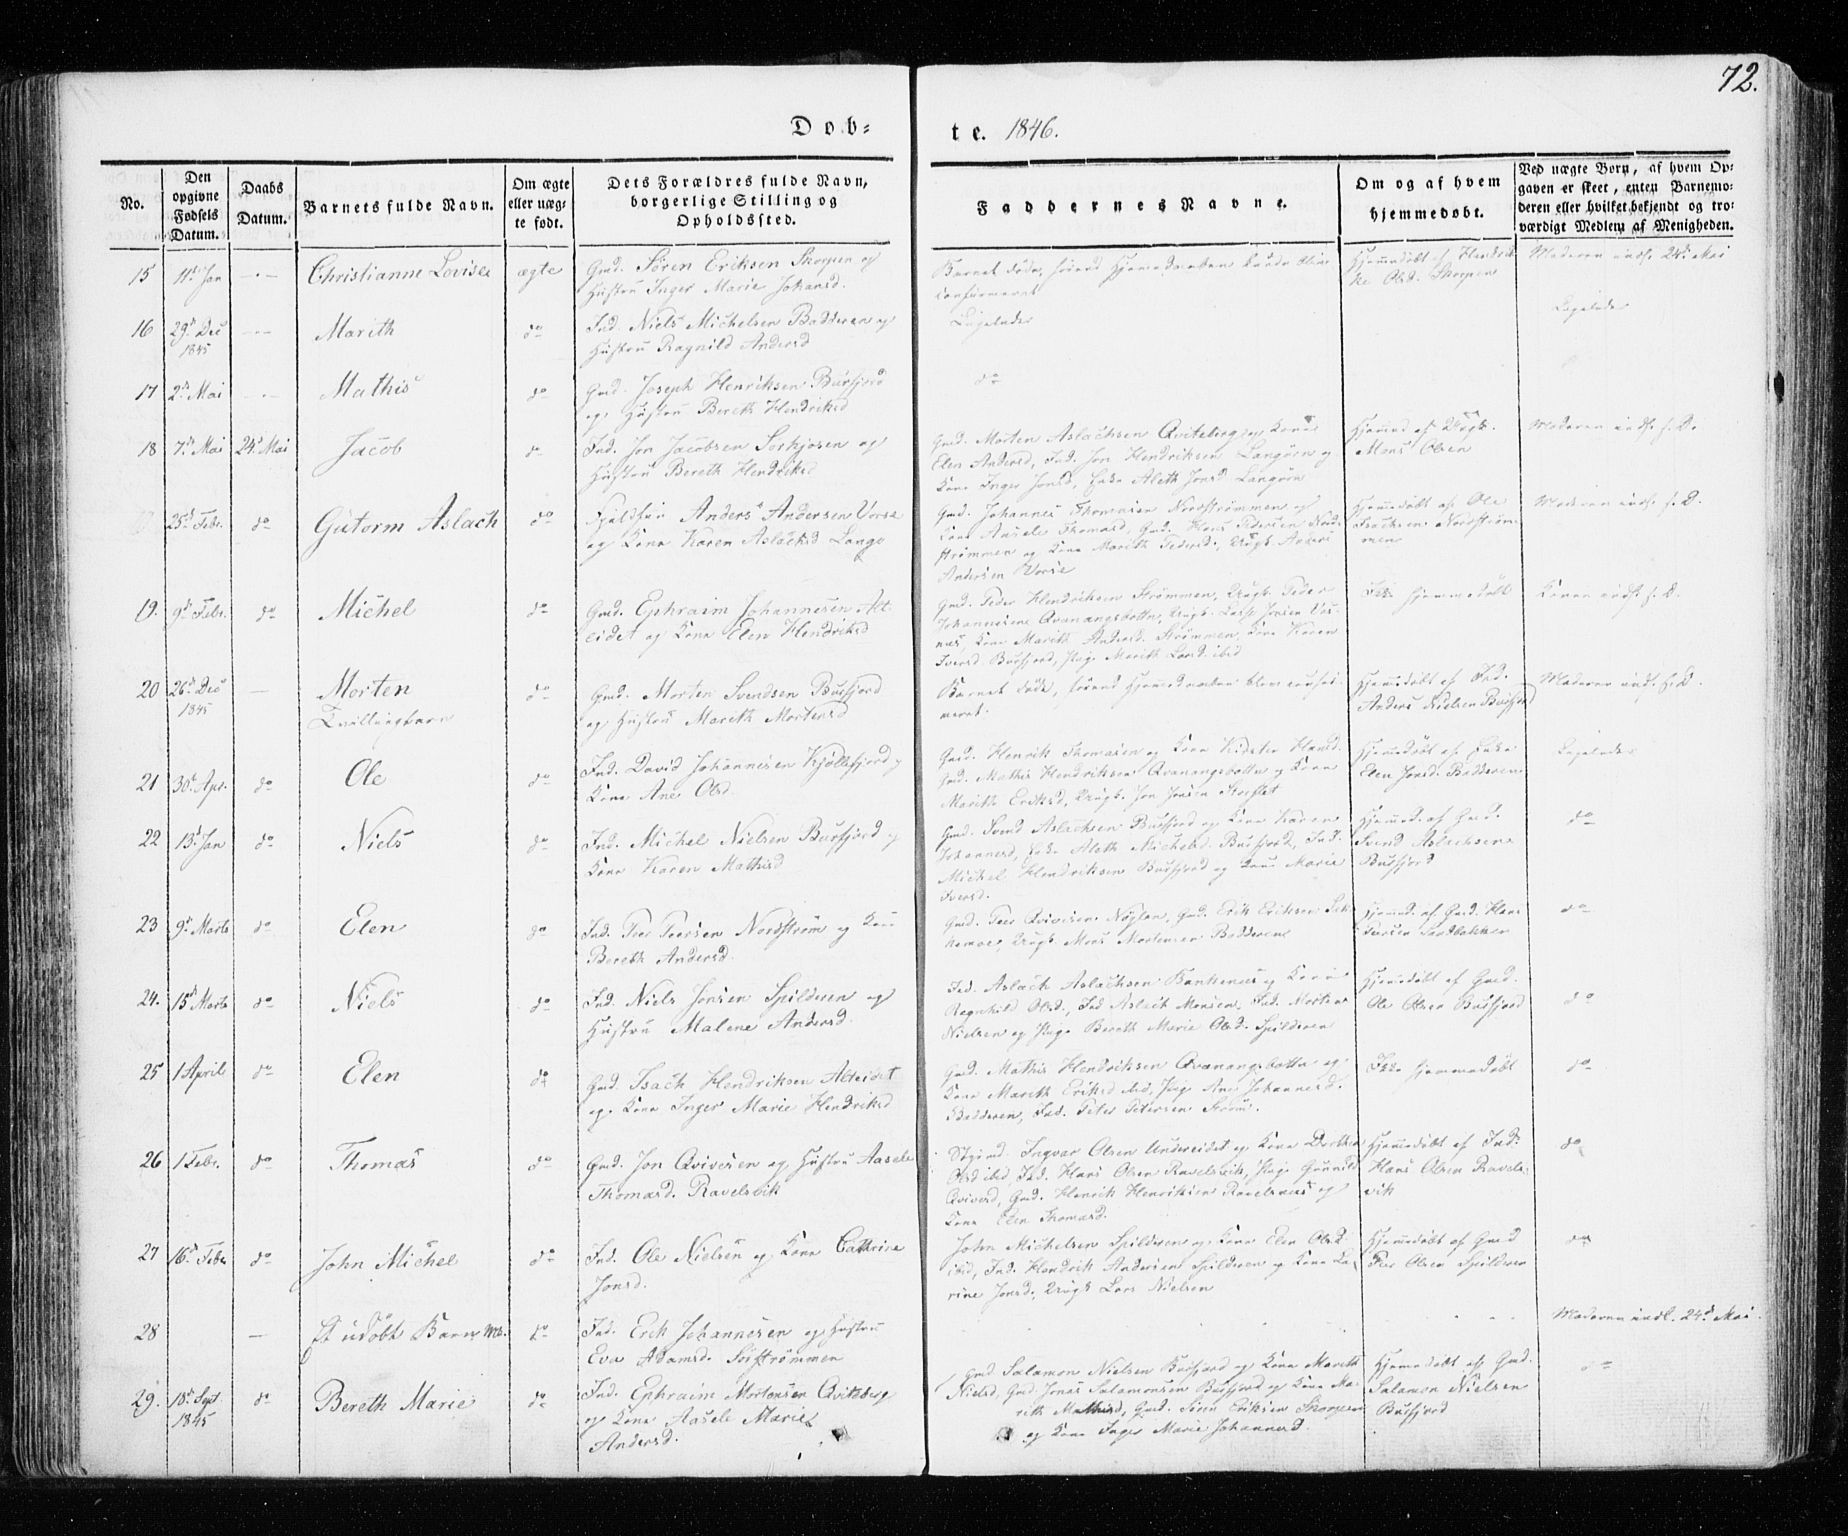 72.
Dob-
te. 1846.
No.
Den opgivne Fødsels Datum.
Daabs Datum.
Barnets fulde Navn.
Om ægte eller uægte født.
Dets Forældres fulde Navn, borgerlige Stilling og Opholdssted.
Faddernes Navne.
Om og af hvem hjemmedøbt.
Ved uægte Børn, af hvem Opgaven er skeet, enten Barnemoderen eller hvilket bekjendt og troværdigt Medlem af Menigheden.
15 11te Jan Christianne Lovise ægte Gmd. Søren Eriksen Skorpen og
Hustru Inger Marie Johansd.
Hjemmedøbt af Hendrikke Olsd. Skorpen
Moderen indl. 24de Mai
16 29de Dec 1845 Marith do Ind. Niels Michelsen Badderen og
Hustru Ragnild Andersd
Ligeledes
Ligeledes
17 2de Mai Mathis do Gmd. Joseph Henriksen Burfjord
og Hustru Bereth Hendriksd
do
18 7de Mai 24de Mai Jacob do Ind. Jon Jacobsen Sørkjosen og
Hustru Bereth Hendriksd
Gmd. Morten Aslachsen Qviteberg og Kone
Elen Andersd, Ind. Jon Hendriksen Langøren og
Kone Inger Jonsd, Enke Aleth Jonsd Langøren
Mons Olsen
25de Febr. do Gutorm Aslach do Anders Andersen Vorse
og Kone Karen Aslachsd
Gmd. Johannes Thomasen Nordstrømmen og
Kone Aasele Thomasd, Gmd. Hans Pedersen Nordstrømmen og Kone Marith Pedersd., Ungk. Anders
Andersen Vorse
Hjemmedøbt af Ole Isachsen Nordstrømmen
19. 9de Febr. do Michel do Gmd. Ephraim Johannesen Alteidet og Kone Elen Hendriksd
Gmd. Peder Hendriksen Strømmen, Ungk. Peder
Johannesen Qvanangsbotten,
Kone Marith Andersd. Strømmen, Kone Karen
Iversd. Burfjord, Pige Marith Larsd. ibid
Ikke hjemmedøbt
20 26de Dec 1845 Morten
Tvillingbarn
do Gmd. Morten Svendsen Burfjord
og Hustru Marith Mortensd
Hjemmedøbt af Ind.
Anders Nielsen Burfjord
21 30te Apr. do Ole do Ind. David Johannesen Kjøllefjord og
Kone Ane Olsd.
Gmd. Henrik Thomasen og Kone Kirsten Hansd.
Gmd. Mathis Hendriksen Qvanangsbotten og Kone
Marith Eriksd, Ungk. Jon Jonsen
Hjemmedøbt af Enke
Elen Jonsd. Badderen
Ligeledes
22 13de Jan do Niels do Ind. Michel Nielsen Burfjord og
Kone Karen Mathisd
Gmd. Svend Aslachsen Burfjord og Kone Karen
Johannesd, Enke Aleth Michelsd. Burfjord, Ind.
Michel Hendriksen Burfjord og Kone Marie
Iversd.
Hjemmed. af Gmd.
Svend Aslachsen
Burfjord
do
23 9de Marts do Elen do Ind. Peer Peersen Nordstrøm og Kone
Bereth Andersd.
Gmd. Peer Qvivesen Nøglen, Gmd. Erik Eriksen
Ungk. Mons Mortensen Badderen
Hjemmed. af Gmd. Hans
do
24. 15de Marts do Niels do Ind. Niels Jonsen Spilderen og
Hustru Malene Andersd.
Ind. Aslach Aslachsen og Kone
Ragnhild Olsd., Ind Aslach Monsen, Ind. Morten
Nielsen og Pige Bereth Marie Olsd. Spilderen
Hjemmedøbt af Gmd.
Ole Olsen Burfjord
do
25 1 April do Elen do Gmd. Isach Hendriksen Alteidet
og Kone Inger Marie Hendriksd
Gmd. Mathis Hendriksen Qvanangsbotten og
Kone Marith Eriksd ibid, Pige Ane Johannesd.
Badderen, Ind. Peter Petersen Strøm.
Ikke hjemmedøbt
do
26 1 Febr. do Thomas do Gmd. Jon Qvivesen og Hustru Aasele
Thomasd. Ravelsvik
Ingvar Olsen Undereidet og Kone Dorthea
Olsd ibid, Ind. Hans Olsen Ravelsvik, Pige Gunnild
Qvivesd, Gmd. Henrik Henriksen Ravelsnæs og
Kone Elen Thomasd.
Hjemmedøbt af Ind.
Hans Olsen Ravelsvik
do
27 16de Febr do John Michel do Ind. Ole Nielsen og Kone Cathrine
Jonsd.
John Michelsen Spilderen og Kone Elen Olsd.
ibid, Ind. Hendrik Andersen Spilderen og Kone Larine Jonsd., Ungk Lars Nielsen
Hjemmedøbt af Gmd
Peer Olsen Spilderen
do
28 Et udøbt Barn do Ind. Erik Johannesen og Hustru
Eva Adamsd. Sørstrømmen
Moderen indl. 24de Mai
29. 18de Sept. 1845 do Bereth Marie do Ind. Ephraim Mortensen Qviteberg
og Kone Aasele Marie
Andersd.
Gmd Salamon Nielsen Burfjord og Kone Marith
Nielsd, Gmd. Jonas Salamonsen Burfjord og Kone Marith Mathisd, Gmd. Søren Eriksen Skorpen
og Kone Inger Marie Johannesd.
Hjemmedøbt af Gmd.
Salamon Nielsen
Burfjord
do